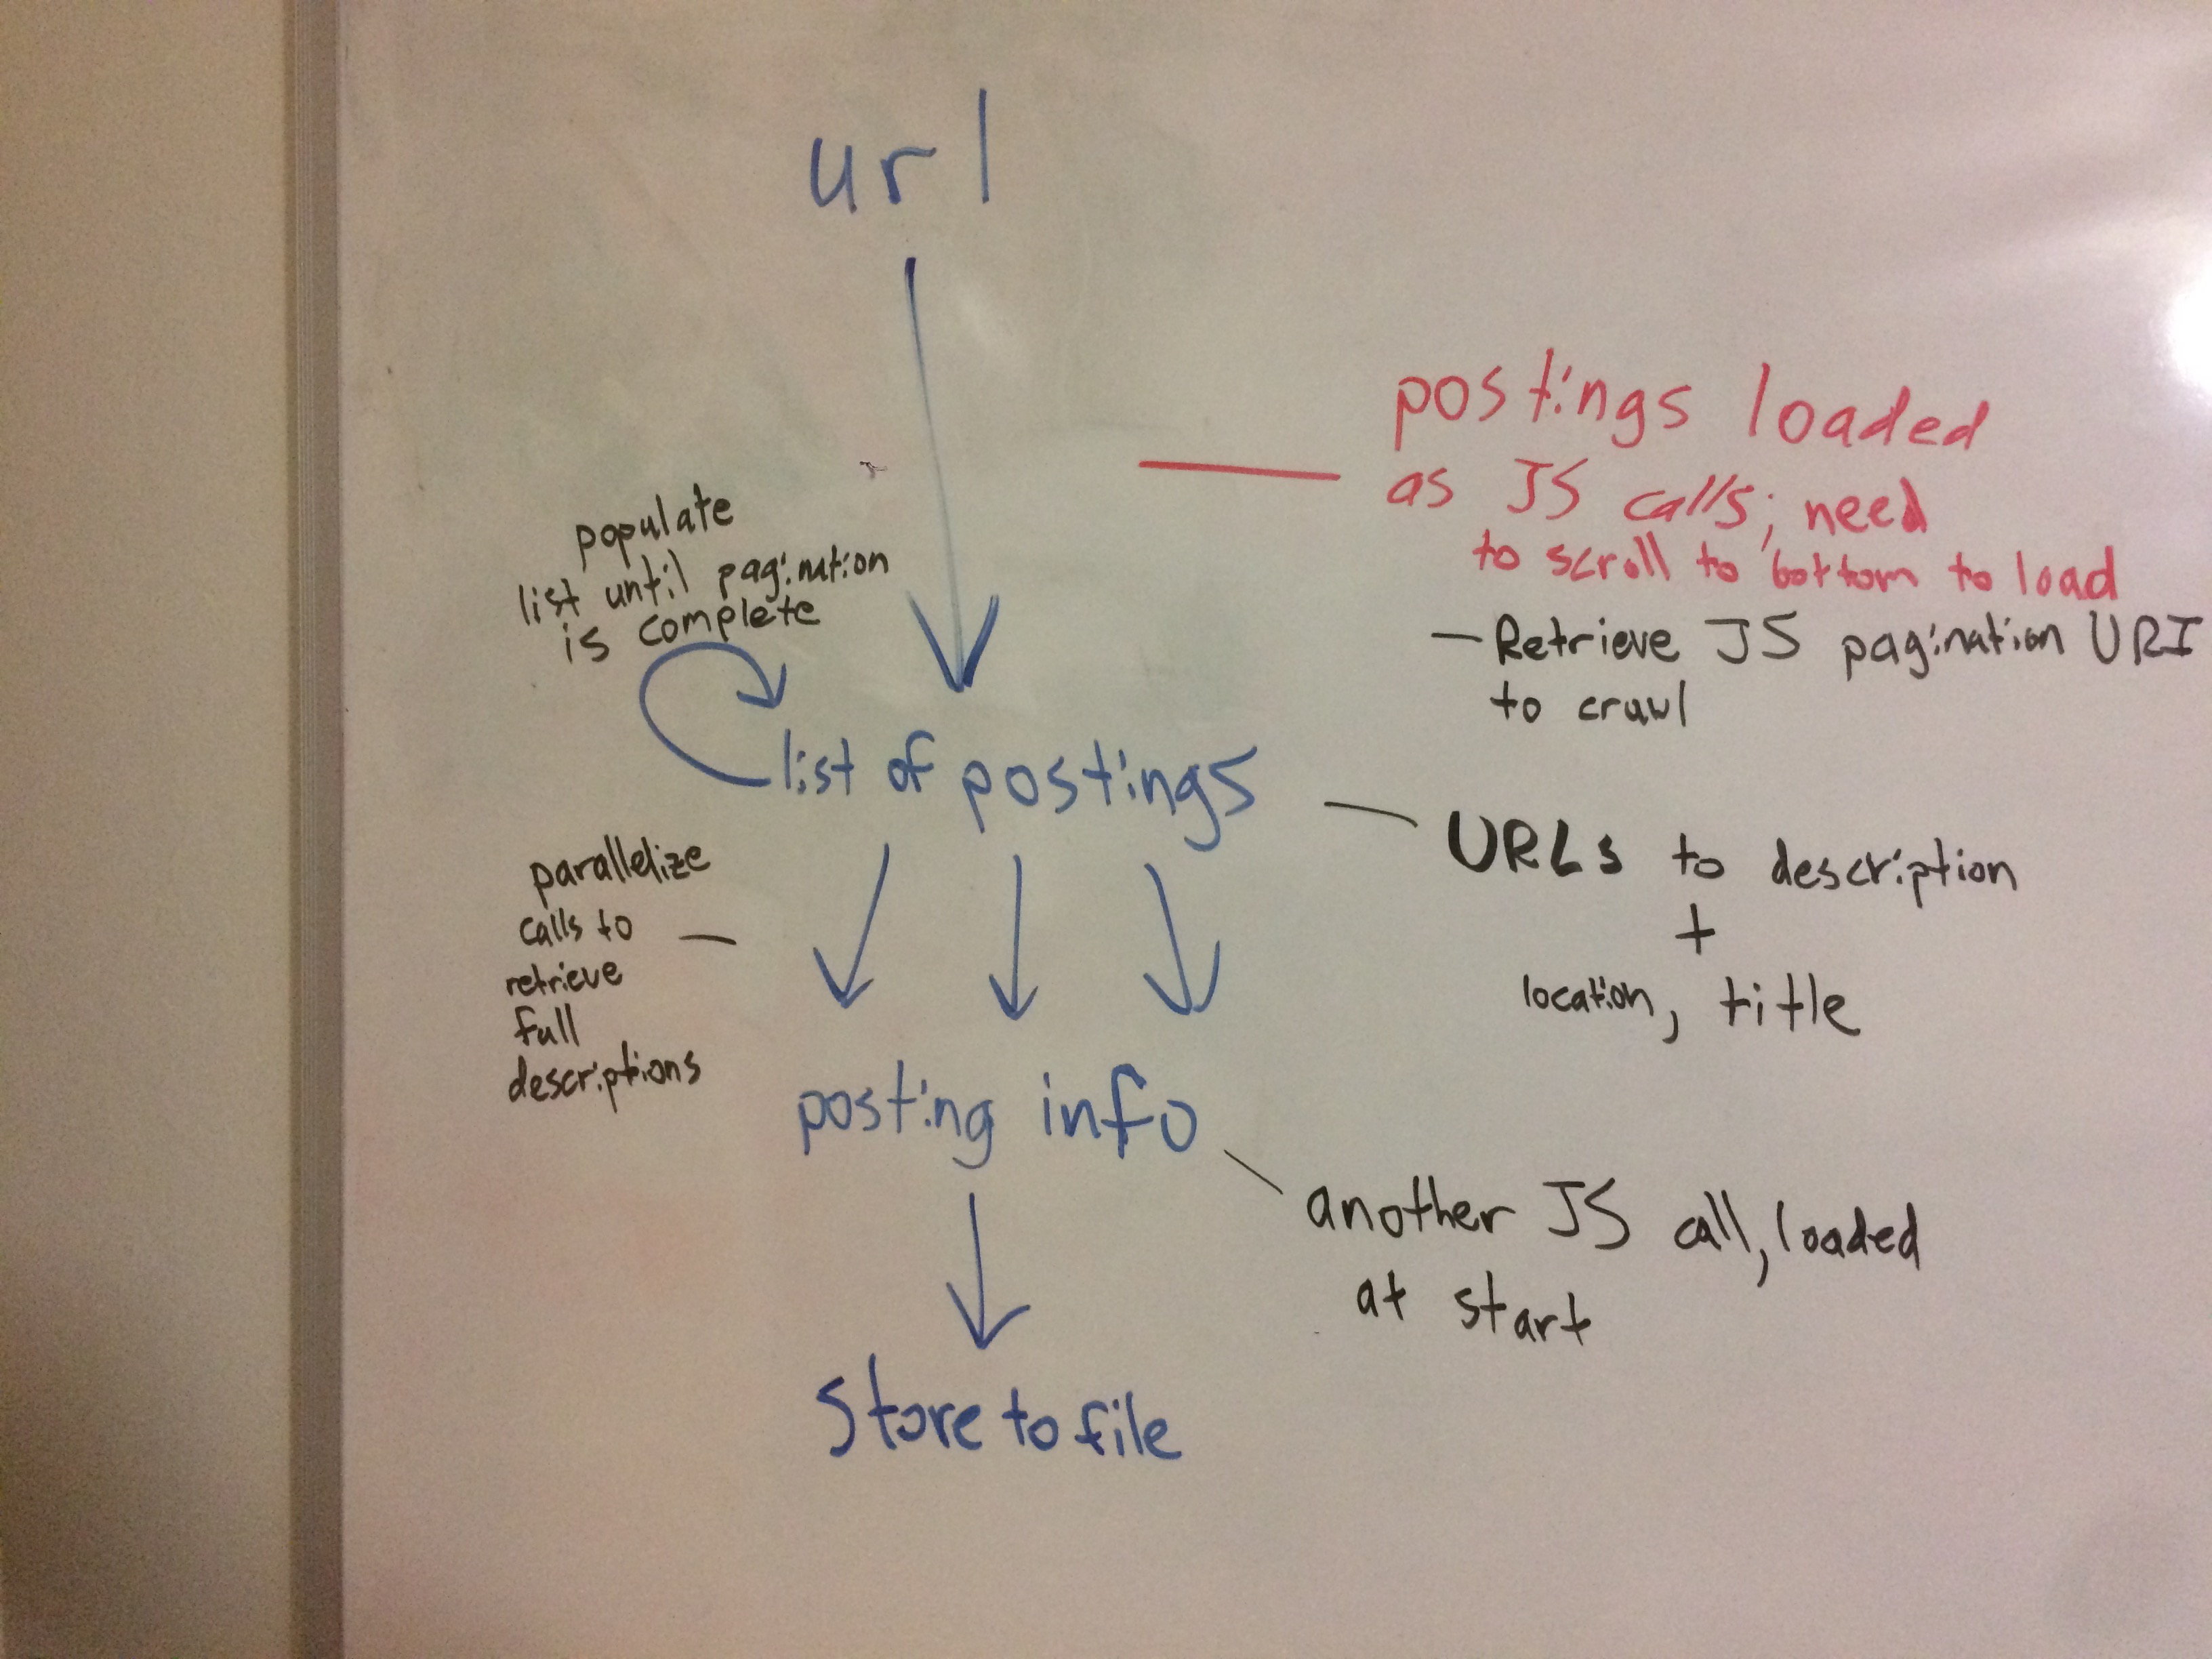 url
postings loaded
as JS calls; need
to scroll to bottom to load
- Retrieve JS pagination URI
to crawl
populate
list until pagination
is complete
list of postings
URLs to description
+
location, title
parallelize
calls to
retrieve
full
descriptions
posting info
another JS call, loaded
at start
store to file